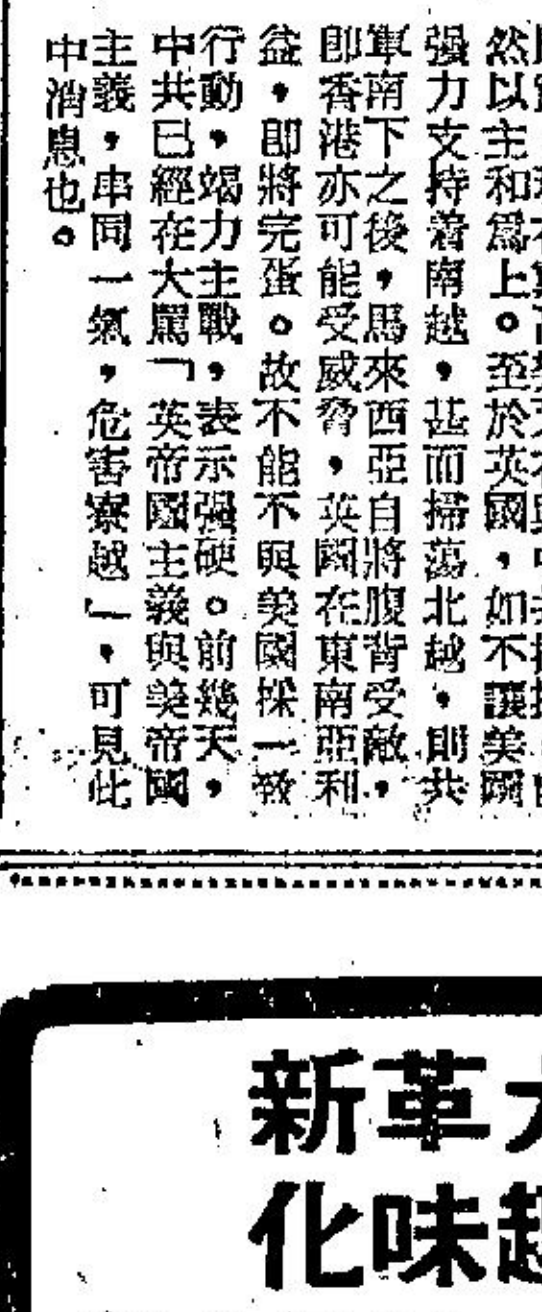 然以主和爲上。至於英國，如不讓美國
强力支持着南越，甚而掃蕩北越，則共
軍南下之後，馬來西亞自將腹背受敵，
卽香港亦可能受威脅，英國在東南亞利
益，卽將完蛋。故不能不與美國採一致
行動，竭力主戰，表示强硬。前幾天，
中共已經在大罵「英帝國主義與美帝國
主義，串同一氣，危害寮越」，可見此
中消息也。
新革
化味